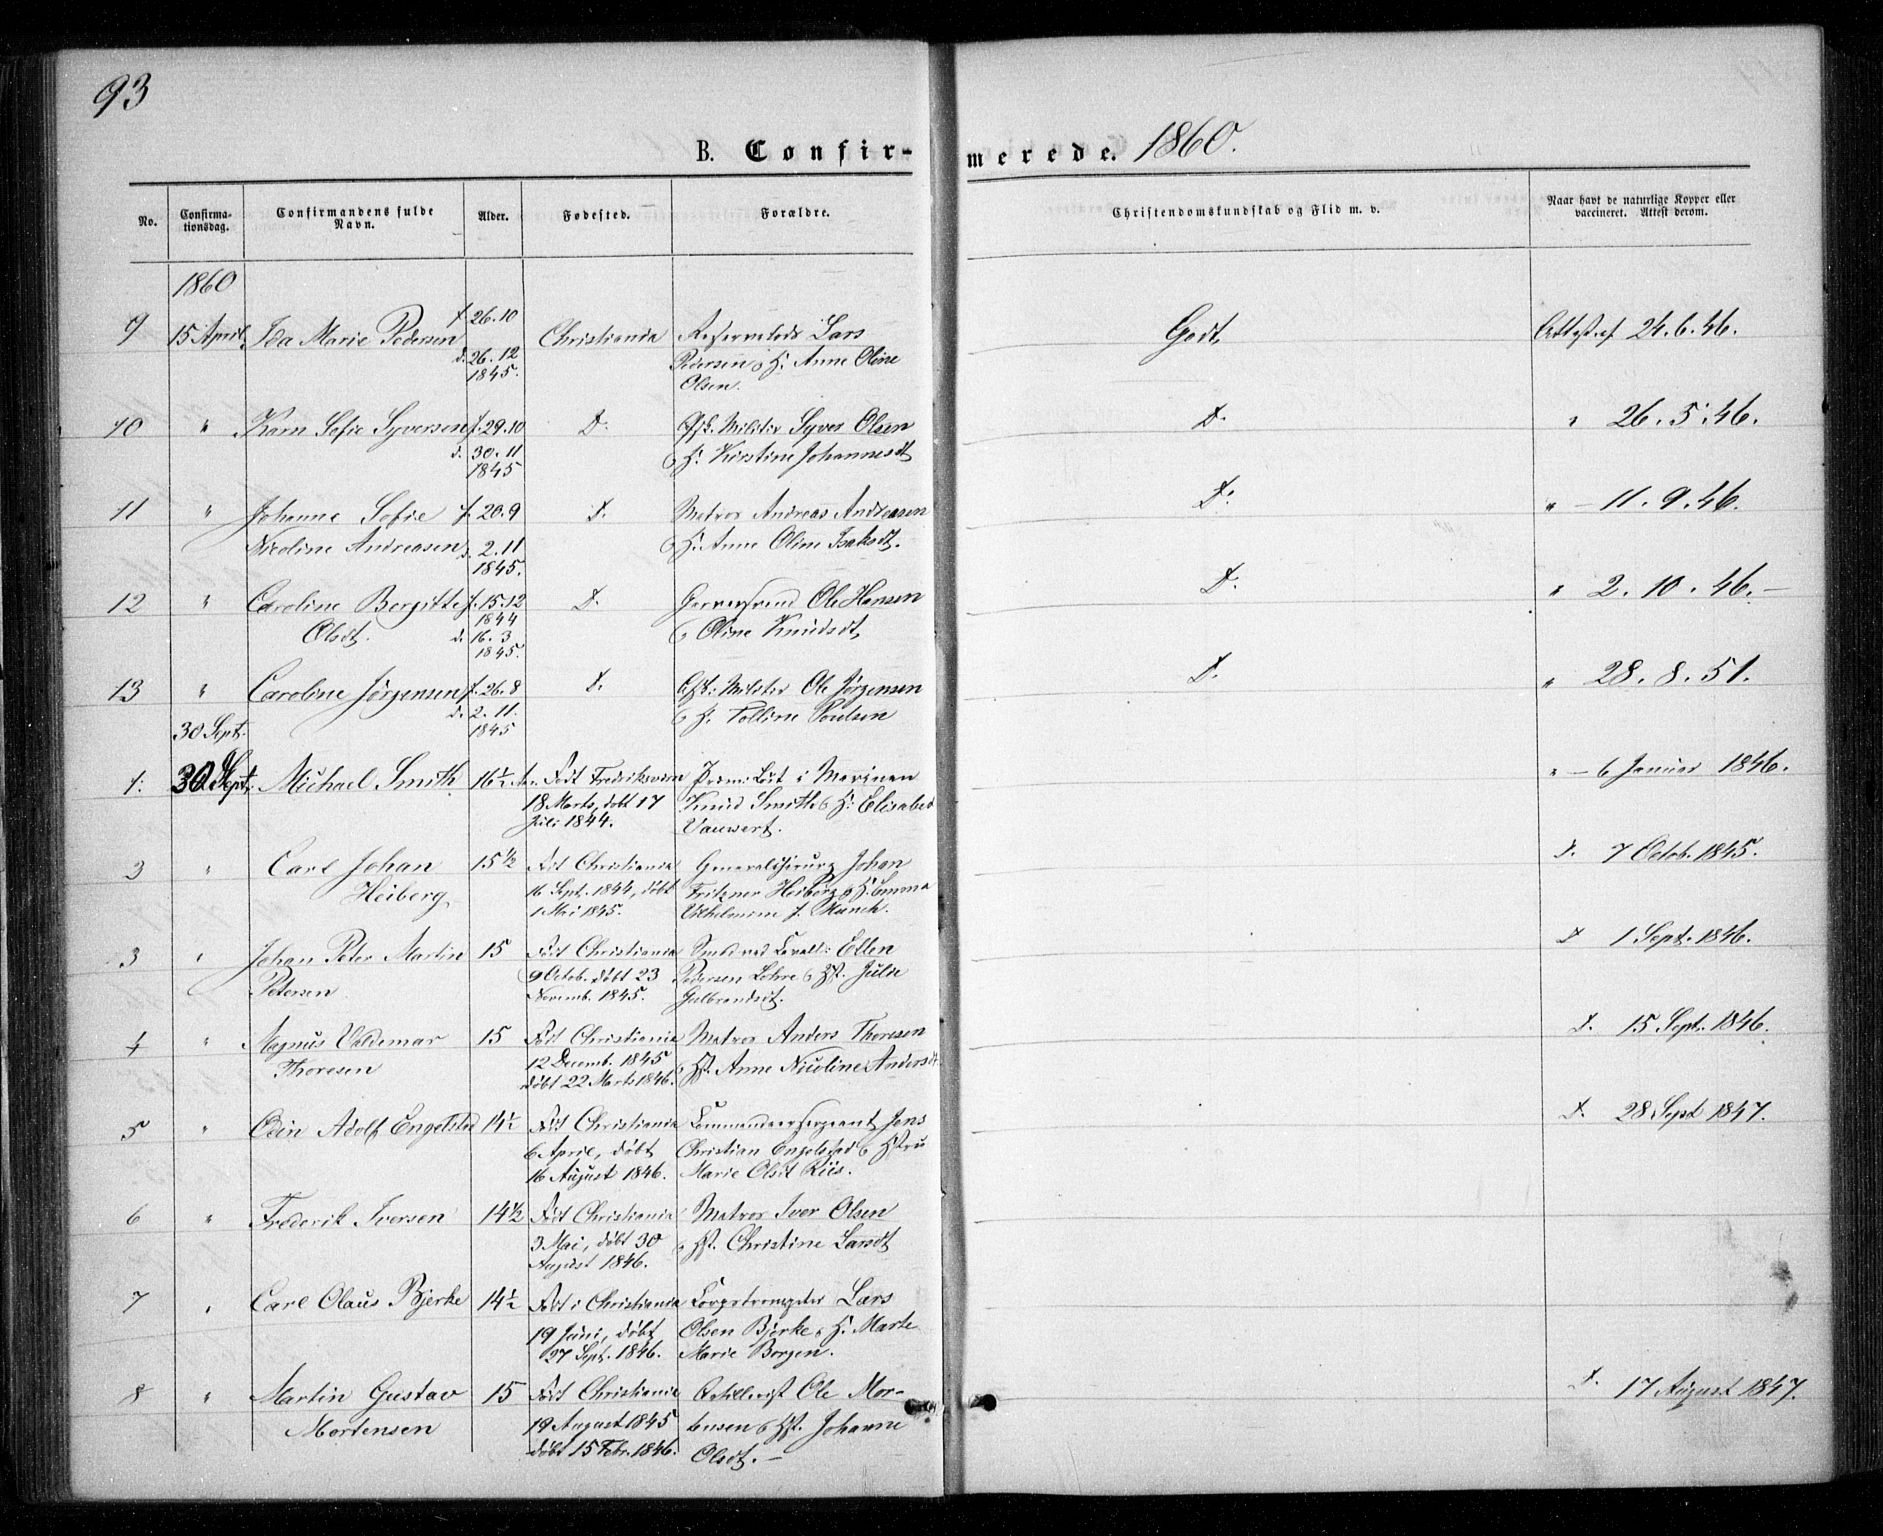 93
B. Confirmerede. 1860.
No. Confirmationsdag. Confirmandens fulde Navn. Alder. Fødested. Forældre. Christendomskundskab og Flid m. v. Naar havt de naturlige Kopper eller vaccineret. Attest derom.
1860
9 15 April Ida Marie Pedersen f. 26.10 Christiania Lars Godt, Attest af 24.6.46.
d. 26.12 Pedersen & H. Anne Oline
1845. Olsen.
10 " Karn Sofie Syversen f. 29.10 D. Gsk. Militær Syver Olsen D. " 26.5.46.
d. 30.11 & H. Kirstine Johannesdt
1845
11 " Johanne Sofie f. 20.9 D. Matros Andreas Andreasen D. " 11.9.46.
Nicoline Andreasen d. 2.11 & H. Anne Oline Isaksdt.
1845.
12 " Caroline Bergitte f. 15.12 D. Garversvend Ole Hansen D. " 2.10.46.–
Olsdt. 1844 & Oline Knudsdt,
d. 16.3
1845.
13 " Caroline Jørgensen f. 26.8 D. Gsk. Militær Ole Jørgensen D. " 28.8.51.
d. 2.11. & H. Poulsen
30 Sept. 1845
1. 30 Sept. Michael Smith 16½ Født Fredriksværn Prem: Løit i Marinen " – 6 Januar 1846.
18 Marts, døbt 17 Knud Smith & H. Elisabed
Juli 1844. Vauwert.
3 " Carl Johan 15½ Født Christiania Generalchirurg Johan D. 7 Octob. 1845.
Heiberg 16 Sept. 1844, døbt Fritzner Heiberg & H. Emma
1 Mai 1845. Vilhelmine f. Munch.
3 " Johan Peter Martin 15 Født Christiania Ellen D. 1 Sept. 1846.
Petersen 9 Octob. døbt 23 Pedersen Lohre & Hst. Julie
Novemb. 1845. Gulbrandsdt.
4 " Magnus Valdemar 15 Født Christiania Matros Anders Thoresen D. 15 Sept. 1846.
Thoresen 12 Decemb. 1845 & Hst. Anne Nicoline Andersdt.
døbt 22 Marts 1846.
5 " Odin Adolf Engelsted 14½ Født Christiania Commandeersergeant Jens D. 28 Sept 1847.
6 April, døbt Christian Engelsted & Hstru
16 August 1846. Marie Olsdt Riis.
6 " Frederik Iversen 14½ Født Christiania Matros Iver Olsen
3 Mai, døbt 30 & Hst. Christine Larsdt
August 1846.
7 " Carl Olaus Bjerke 14½ Født i Christiania Lars
19 Juni, døbt Olsen Bjerke & H. Marte
27 Sept. 1846. Marie Borgen.
8 " Martin Gustav 15 Født Christiania Artillerist Ole Mor- D. 17 August 1847.
Mortensen 19 August 1845 tensen & Hst. Johanne
døbt 15 Febr. 1846. Olsdt. –